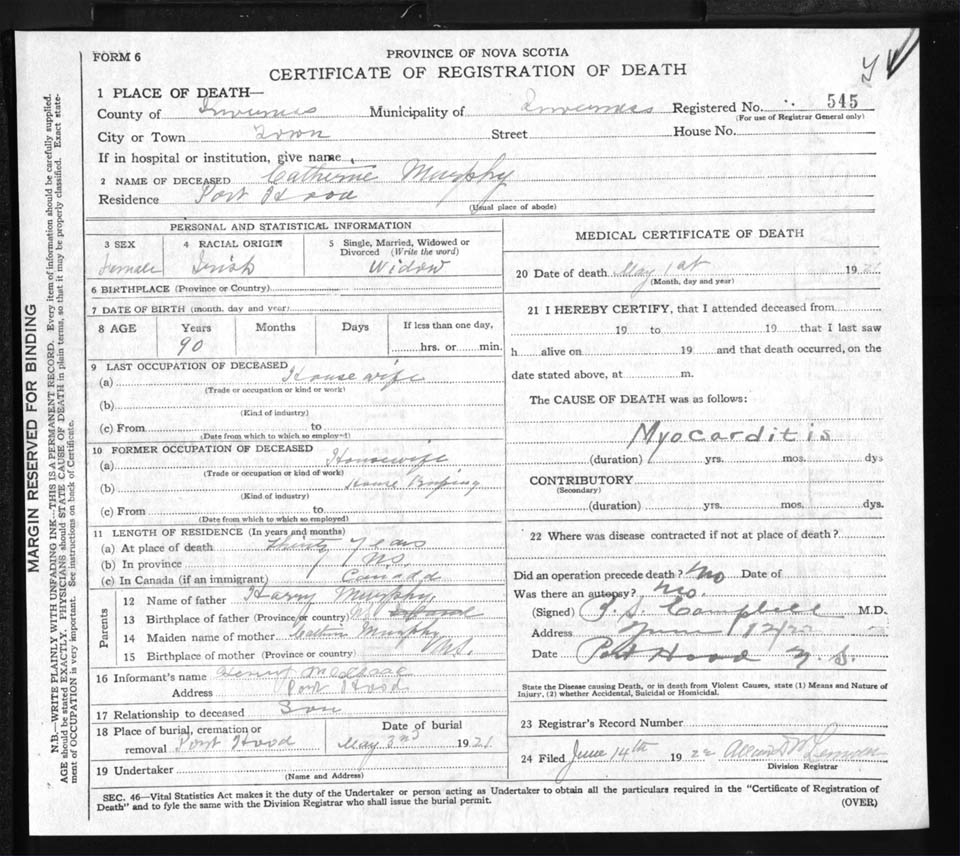 FORM 6
PROVINCE OF NOVA SCOTIA
CERTIFICATE OF REGISTRATION OF DEATH
1 PLACE OF DEATH—
County of Inverness Municipality of Inverness Registered No. 545
(For use of Registrar General only)
City or Town Town Street House No.
If in hospital or institution, give name
2 NAME OF DECEASED Catherine Murphy
Residence Port Hood
(Usual place of abode)
PERSONAL AND STATISTICAL INFORMATION
3 SEX 4 RACIAL ORIGIN 5 Single, Married, Widowed or Divorced (Write the word)
Female Irish Widow
6 BIRTHPLACE (Province or Country)
7 DATE OF BIRTH (month, day and year)
8 AGE Years Months Days If less than one day,
90 hrs. or min.
9 LAST OCCUPATION OF DECEASED
(a) House wife
(Trade or occupation or kind or work)
(b)
(Kind of industry)
(c) From to
(Date from which to which so employed)
10 FORMER OCCUPATION OF DECEASED
(a) Housewife
(Trade or occupation or kind of work)
(b) House
(Kind of industry)
(c) From to
(Date from which to which so employed)
11 LENGTH OF RESIDENCE (In years and months)
(a) At place of death years
(b) In province N.S.
(c) In Canada (if an immigrant) Canada
Parents
12 Name of father Harry Murphy
13 Birthplace of father (Province or country) N.S.
14 Maiden name of mother Murphy
15 Birthplace of mother (Province or country) N.S.
16 Informant's name Henry
Address Port Hood
17 Relationship to deceased Son
18 Place of burial, cremation or removal Port Hood
Date of burial
May 3rd 1921
19 Undertaker
(Name and Address)
MEDICAL CERTIFICATE OF DEATH
20 Date of death May 1st 1921
(Month, day and year)
21 I HEREBY CERTIFY, that I attended deceased from
19 to 19 that I last saw
h alive on 19 and that death occurred, on the
date stated above, at m.
The CAUSE OF DEATH was as follows:
Myocarditis
(duration) yrs. mos. dys
CONTRIBUTORY
(Secondary)
(duration) yrs. mos. dys.
22 Where was disease contracted if not at place of death?
Did an operation precede death? No Date of
Was there an autopsy? No.
(Signed) Campbell M.D.
Address June 12/22
Date Port Hood N.S.
State the Disease causing Death, or in death from Violent Causes, state (1) Means and Nature of
Injury, (2) whether Accidental, Suicidal or Homicidal.
23 Registrar's Record Number
24 Filed June 14th 1922
Division Registrar
SEC. 46—Vital Statistics Act makes it the duty of the Undertaker or person acting as Undertaker to obtain all the particulars required in the "Certificate of Registration of
Death" and to fyle the same with the Division Registrar who shall issue the burial permit. (OVER)
MARGIN RESERVED FOR BINDING
N.B.—WRITE PLAINLY WITH UNFADING INK—THIS IS A PERMANENT RECORD. Every item of information should be carefully supplied.
AGE should be stated EXACTLY. PHYSICIANS should STATE CAUSE OF DEATH in plain terms, so that it may be properly classified. Exact state-
ment of OCCUPATION is very important. See instructions on back of Certificate.